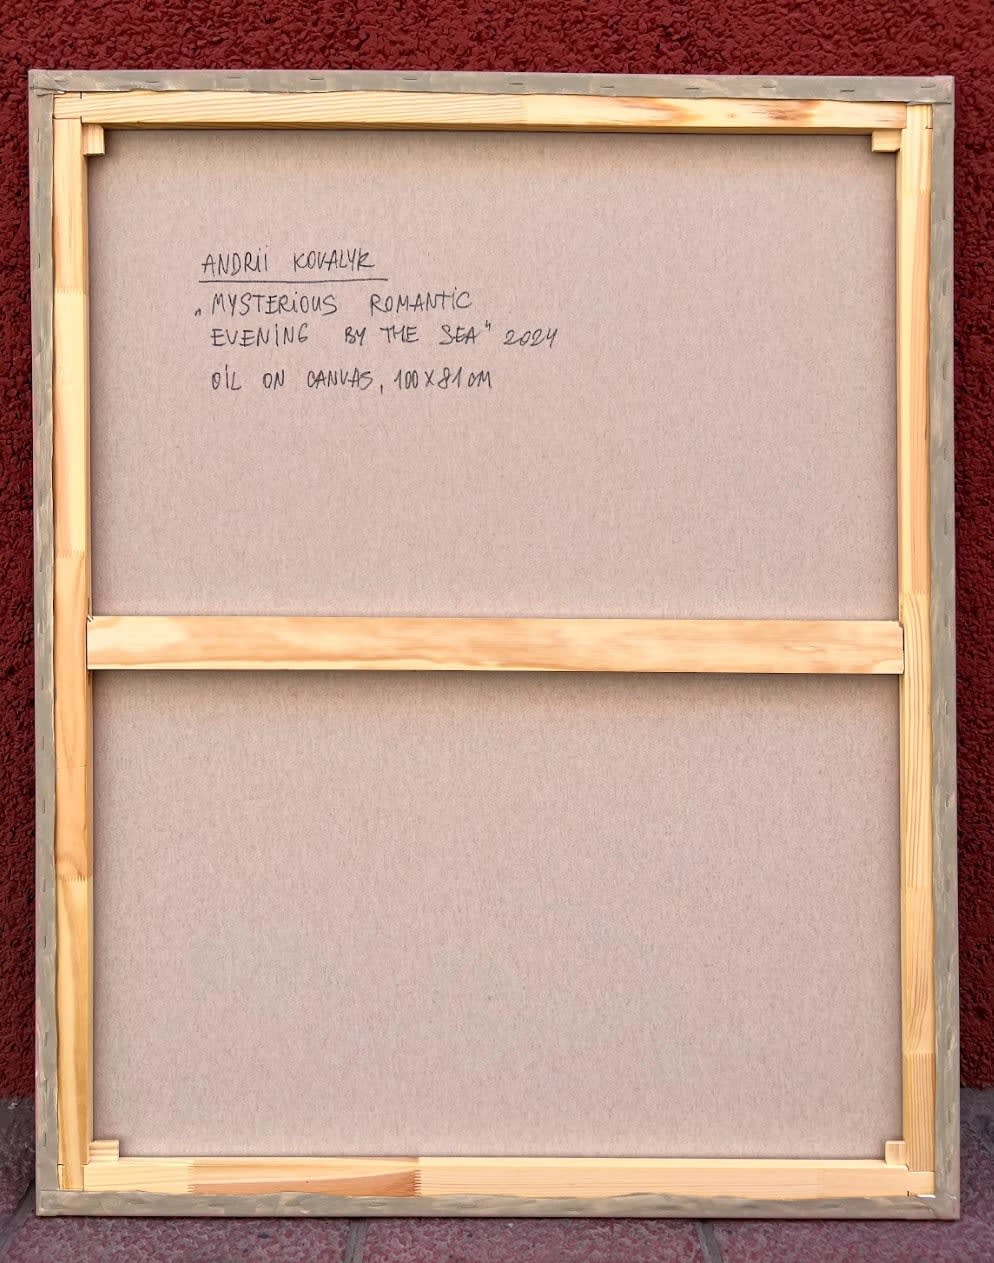 ANDRII KOVALYK
„MYSTERIOUS ROMANTIC
EVENING BY THE SEA" 2024
OIL ON CANVAS, 100X81 CM